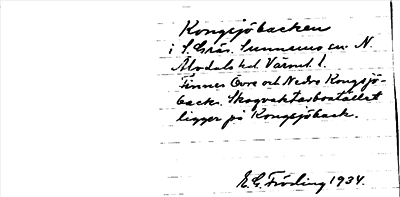 Kongsjöbacken
i S. Grän. Sunnemo sn. N.
Älvdals hd. Värml l.
Finnes Övre och Nedre Kongsjö-
back. Skogvaktarbostället
ligger på Kongsjöback.
E. G. Fröding 1934.